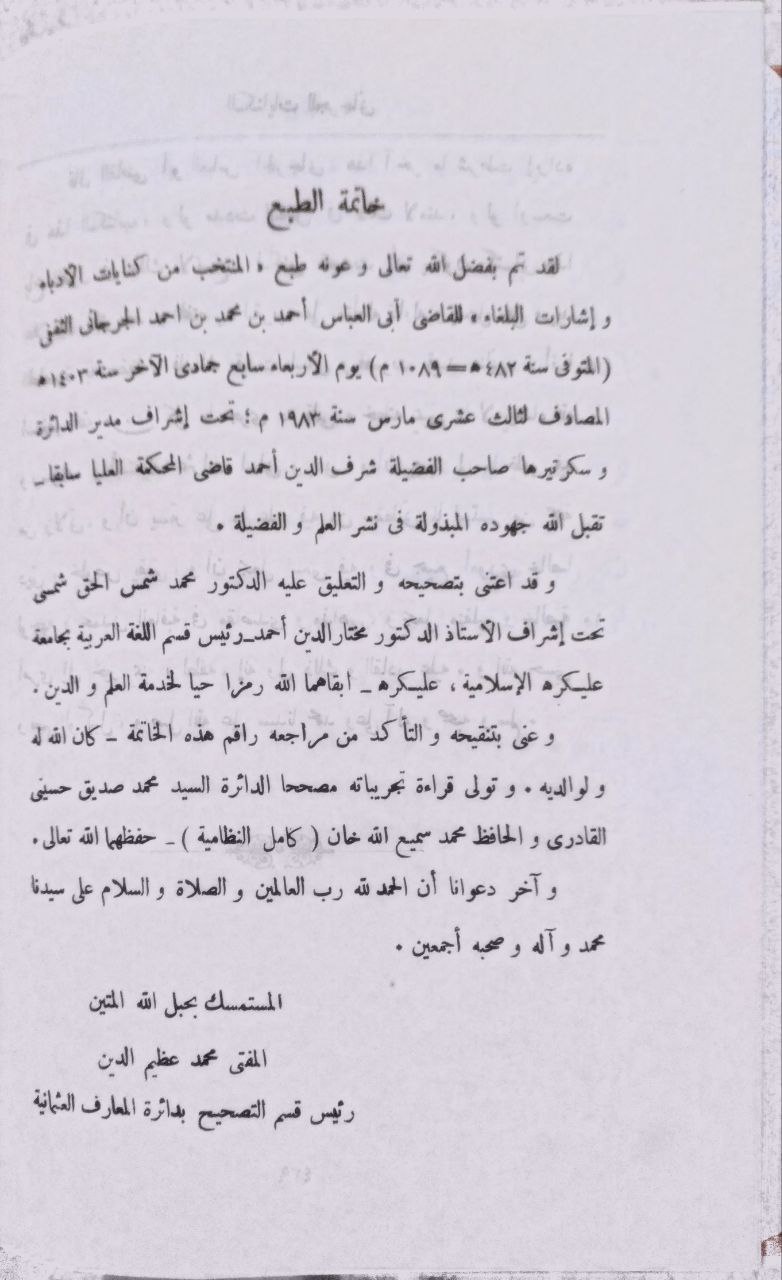 خاتمة الطبع
لقد تم بفضل الله تعالى و عونه طبع « المنتخب من كنايات الأدباء
و إشارات البلغاء » للقاضى أبى العباس أحمد بن محمد بن احمد الجرجانى الثقفى
(المتوفى سنة ٤٨٢ ﻫ = ١٠٨٩ م) يوم الأربعاء سابع جمادى الآخر سنة ١٤٠٣ ﻫ
المصادف لثالث عشرى مارس سنة ١٩٨٣ م ؛ تحت إشراف مدير الدائرة
و سكرتيرها صاحب الفضيلة شرف الدين أحمد قاضى المحكمة العليا سابقا ــ
تقبل الله جهوده المبذولة فى نشر العلم و الفضيلة .
و قد اعتنى بتصحيحه و التعليق عليه الدكتور محمد شمس الحق شمسى
تحت إشراف الأستاذ الدكتور مختارالدين أحمد ــ رئيس قسم اللغة العربية بجامعة
عليكره الإسلامية ، عليكره ــ ابقاهما الله رمزا حيا لخدمة العلم و الدين .
و عنى بتنقيحه و التأكد من مراجعه راقم هذه الخاتمة ــ كان الله له
و لوالديه . و تولى قراءة تجريباته مصححا الدائرة السيد محمد صديق حسينى
القادرى و الحافظ محمد سميع الله خان ( كامل النظامية ) ــ حفظهما الله تعالى .
و آخر دعوانا أن الحمد لله رب العالمين و الصلاة و السلام على سيدنا
محمد و آله و صحبه أجمعين .
المستمسك بحبل الله المتين
المفتى محمد عظيم الدين
رئيس قسم التصحيح بدائرة المعارف العثمانية